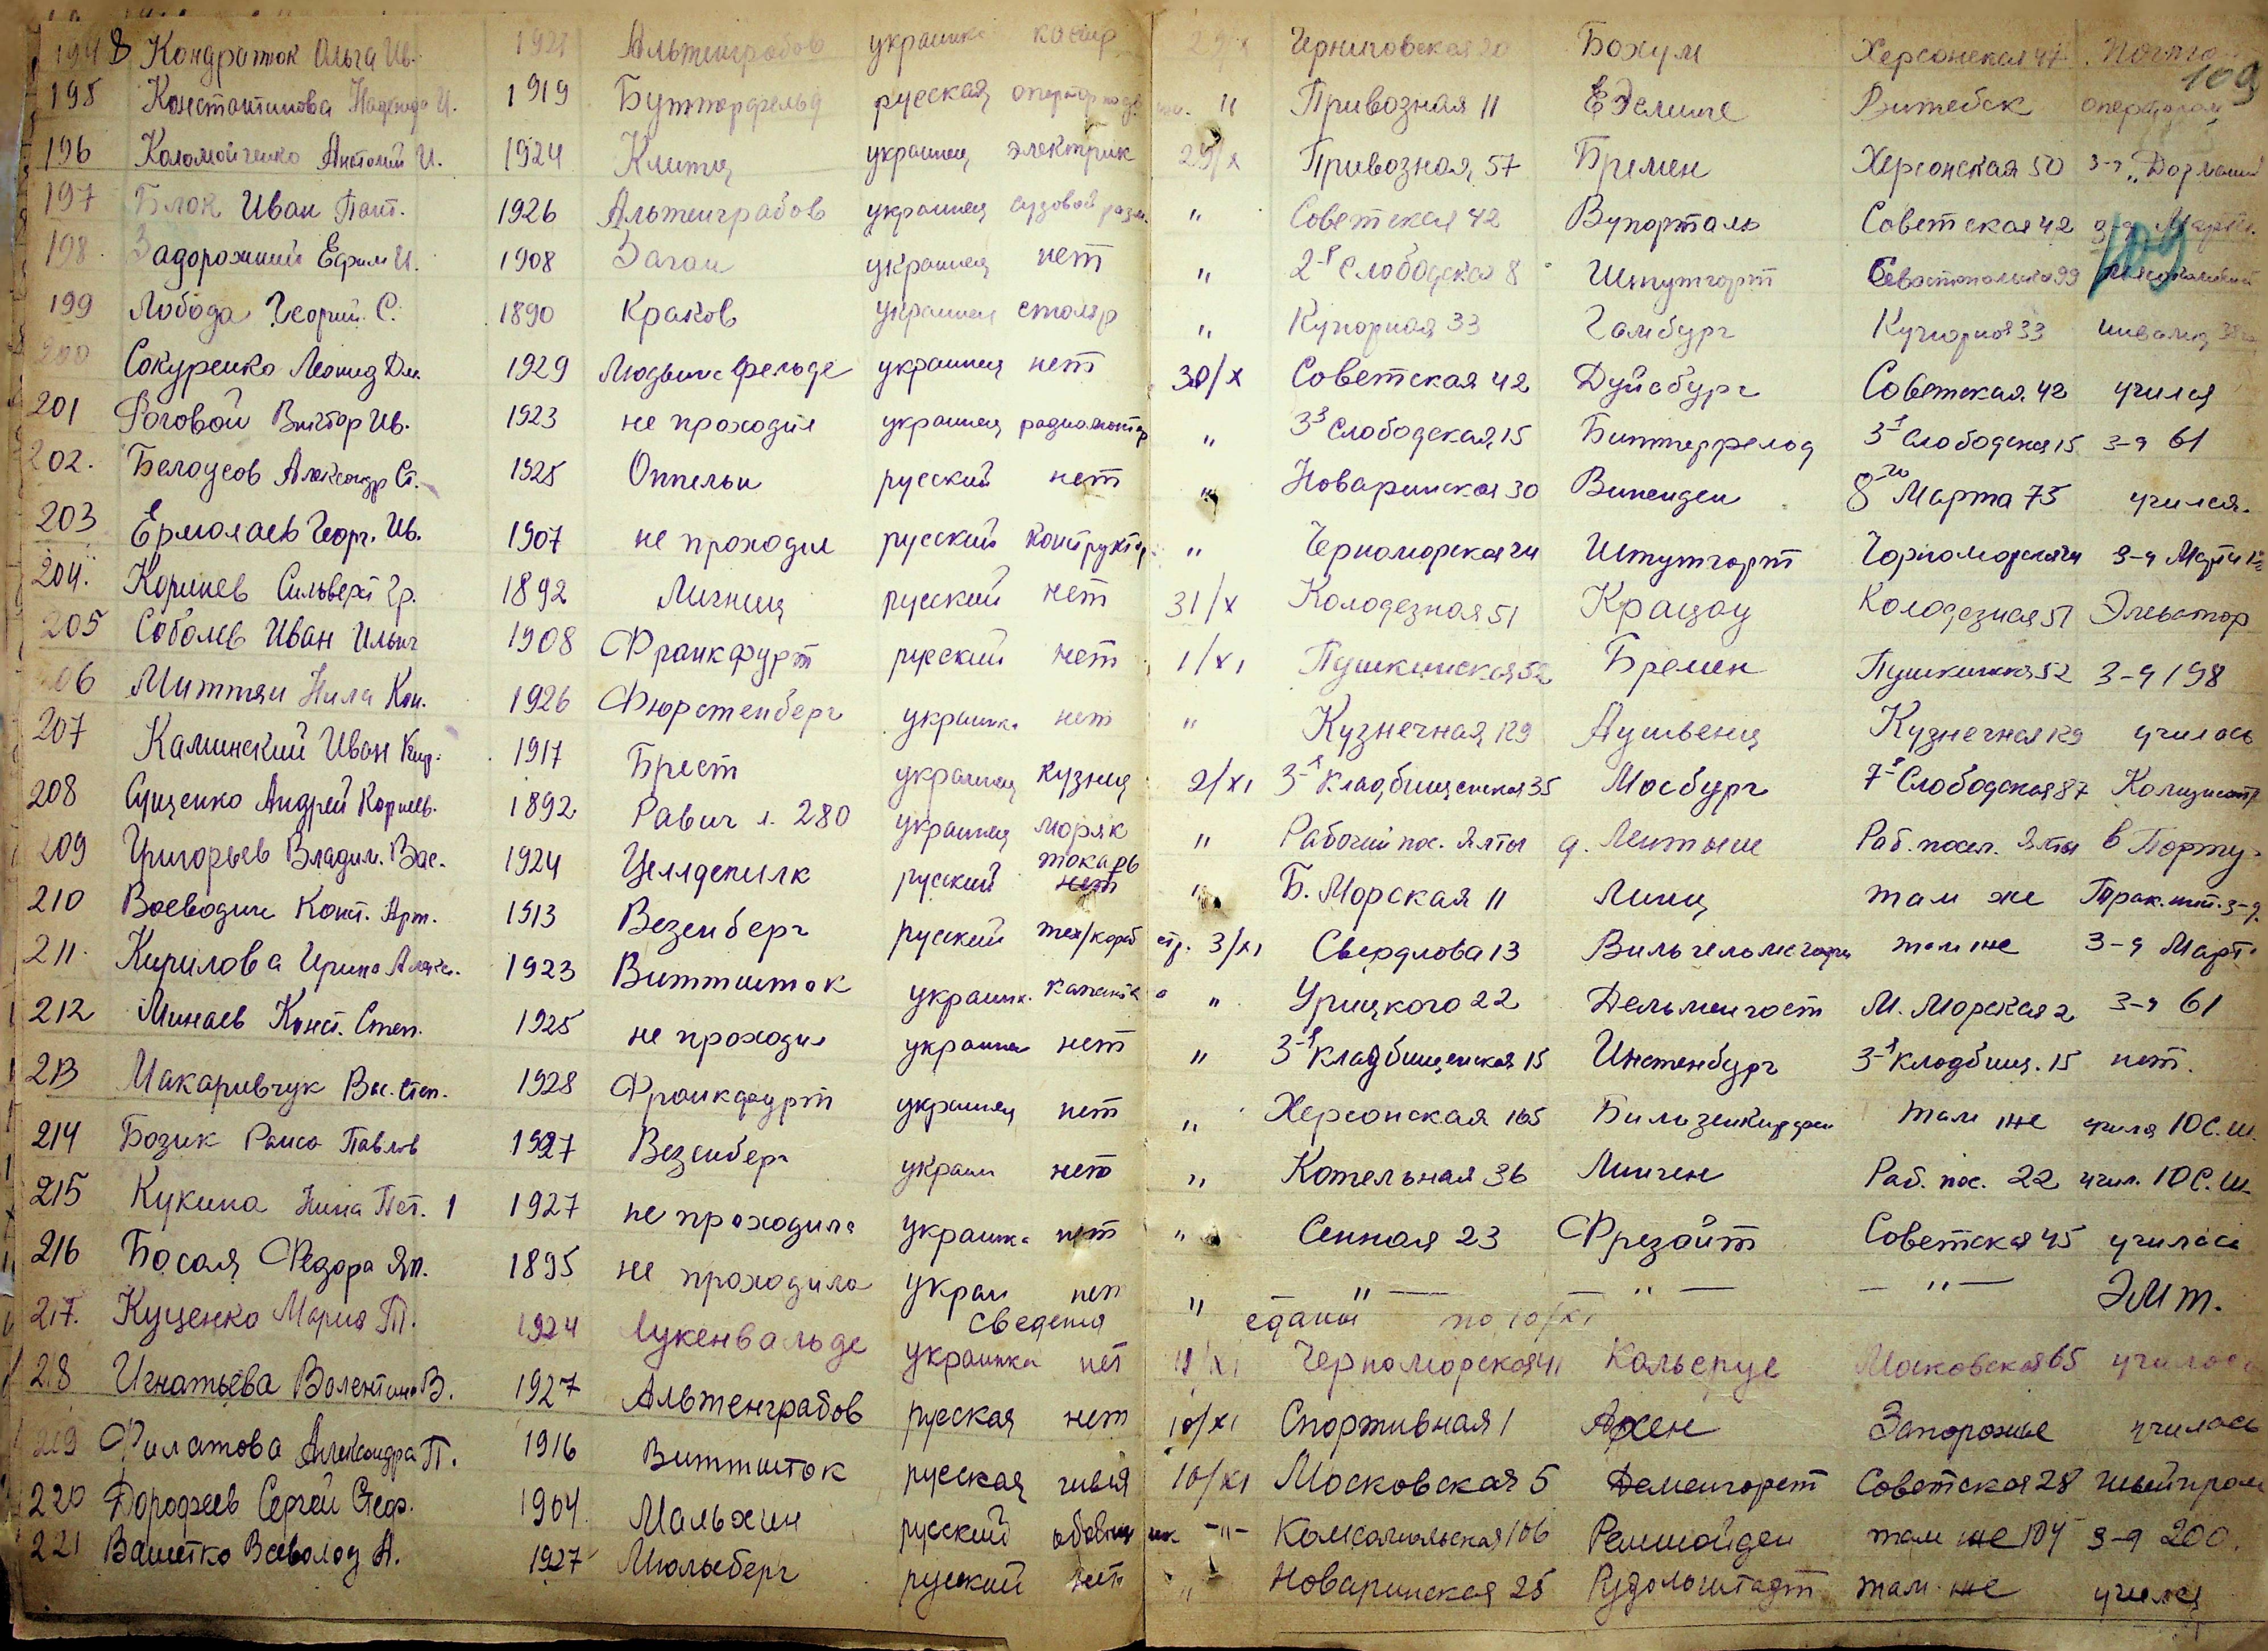 Кондраток Ольга Ив. 1921 Альтенграбов украинка 29/X Черниговская 20 Бохум Херсонская 47
109
195 Константинова Надежда И. 1919 Буттерфельд русская оператор " Привозная 11 Витебск оператором
196 Коломойченко Анатолий И. 1924 Клитц украинец электрик 29/X Привозная 57 Бремен Херсонская 50 з-д
197 Блок Иван Пант. 1926 Альтенграбов украинец " Советская 42 Вупорталь Советская 42
109
198 Задорожний Ефим И. 1908 Заган украинец нет " 2-я Слободская 8 Штутгорт Севастопольская 99
199 Лобода Георгий С. 1890 Краков украинец столяр " Купорная 33 Гамбург Купорная 33 инвалид
200 Сокуренко Леонид Дм. 1929 Людвигсфельде украинец нет 30/X Советская 42 Дуйсбург Советская 42 учился
201 Роговой Виктор Ив. 1923 не проходил украинец радиомонтер " 3я Слободская 15 Биттерфельд 3я Слободская 15 з-д 61
202. Белоусов Александр Ст. 1925 Оппельн русский нет " Новаринская 30 Виненден 8го Марта 73 учился.
203 Ермолаев Георг. Ив. 1907 не проходил русский конструктор " Черноморская 24 Штутгорт Чорноморская 24 з-д Марти
204. Корнев Сильвест Гр. 1892 Лигниц русский нет 31/X Колодезная 51 Крацау Колодезная 51 Элеватор
205 Соболев Иван Ильич 1908 Франкфурт русский нет 1/XI Пушкинская 52 Бремен Пушкинская 52 з-д 198
206 Миттян Нила Кон. 1926 Фюрстенберг украинка нет " Кузнечная 129 Аушвенц Кузнечная 129 училась
207 Каминский Иван Кир. 1917 Брест украинец кузнец 2/XI 3-я Кладбищенская 35 Мосбург 7я Слободская 87
208 Сущенко Андрей Корнеев. 1892 Равич л. 280 украинец моряк " Рабочий пос. Ялты д. Раб. посел. Ялты в Порту
209 Григорьев Владим. Вас. 1924 русский токарь нет " Б. Морская 11 Линц там же Трак. з-д.
210 Воеводин Конст. Арт. 1913 Везенберг русский тех/кораб стр. 3/XI Свердлова 13 там же з-д Март.
211. Кирилова Ирина Алекс. 1923 Виттшток украинк. " Урицкого 22 Дельменгост М. Морская 2 з-д 61
212 Минаев Конст. Степ. 1925 не проходил нет " 3-я Кладбищенская 15 Инстенбург 3-я Кладбищ. 15 нет.
213 Макаривчук Вас. Степ. 1928 Франкфурт украинец нет " Херсонская 165 там же 10 С.Ш.
214 Бозик Раиса Павлов 1927 Везенберг украин нет " Котельная 36 Линген Раб. пос. 22 учил. 10 С.Ш.
215 Кукина Нина Пет. 1 1927 не проходила украинка нет " Сенная 23 Фрезойт Советская 45 училась
216 Босая Федора Яп. 1895 не проходила украин нет " — " — — " — — " —
сведения сданы по 10/XI
217. Куценко Мария П. 1924 Лукенвальде украинка нет 11/XI Черноморская 41 Кальсруе Московская 65 училась
218 Игнатьева Валентина В. 1927 Альтенграбов русская нет 10/XI Спортивная 1 Ахен Запорожье училась
219 Филатова Александра П. 1916 Виттшток русская швея 10/XI Московская 5 Деменгорст Советская 28 швейпром
220 Дорофеев Сергей Стеф. 1904 Мальхин русский -"- Комсомольская 106 Реммойден там же 104 з-д 200.
221 Вашетко Всеволод А. 1927 Мюльберг русский нет " Новаринская 25 Рудольштадт там же учился